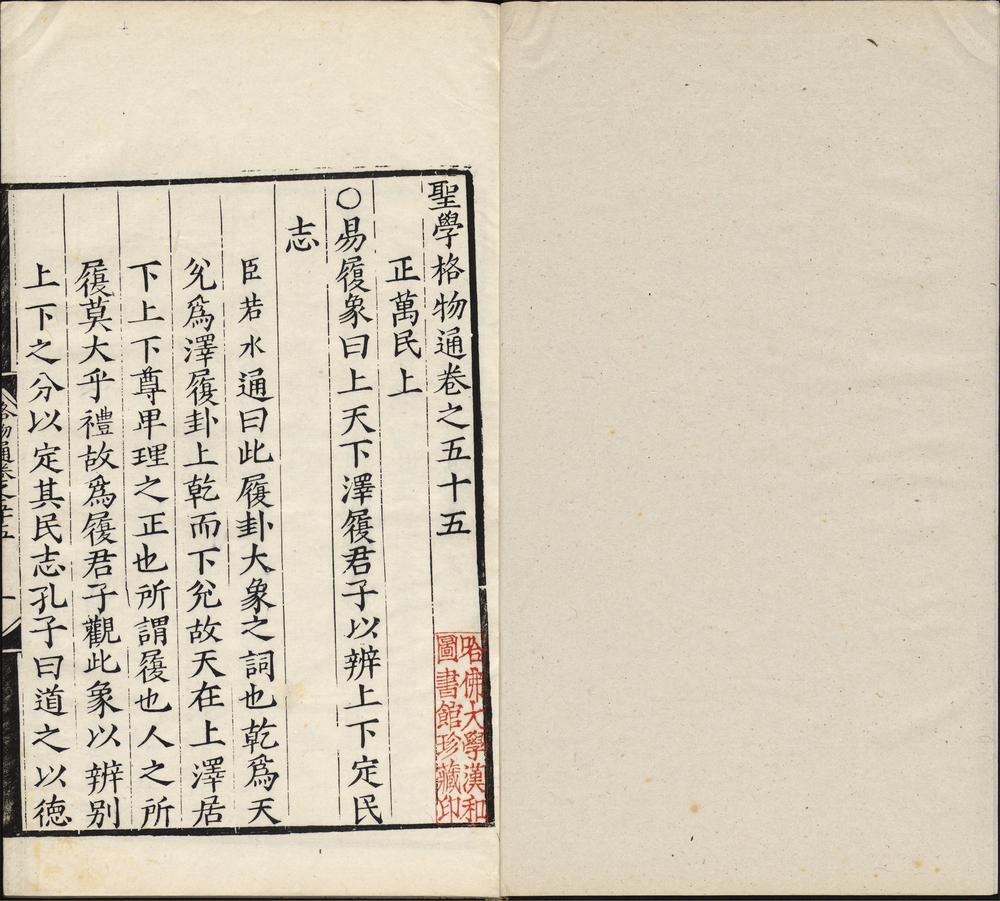 聖學格物通卷之五十五
正萬民上
○易履象曰上天下澤履君子以辨上下定民
志
臣若水通曰此履卦大象之詞也乾爲天
兌爲澤履卦上乾而下兌故天在上澤居
下上下尊卑理之正也所謂履也人之所
履莫大乎禮故爲履君子觀此象以辨别
上下之分以定其民志孔子曰道之以德
格物通卷之五十五
一
哈佛大學漢和
圖書館珍藏印